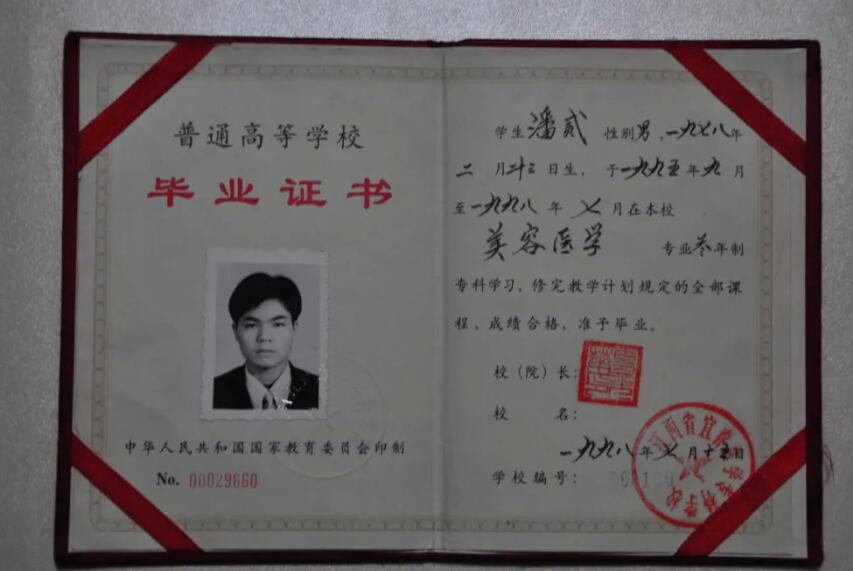 普通高等学校
毕业证书
中华人民共和国国家教育委员会印制
No. 00029660
学生 潘贰 性别男,一九七八年
二月二十三日生,于一九九五年九月
至一九九八年七月在本校
美容医学 专业叁年制
专科学习,修完教学计划规定的全部课
程,成绩合格,准予毕业。
校(院)长:
校名:
一九九八年七月十五日
学校编号: